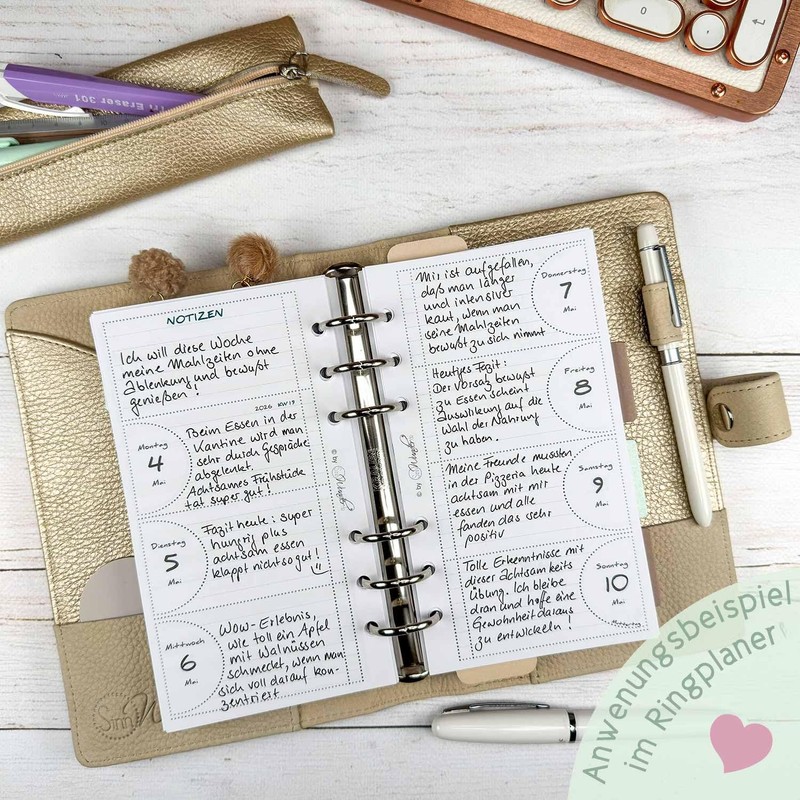 Eraser 301
0
NOTIZEN
Ich will diese Woche
meine Mahlzeiten ohne
Ablenkung und bewußt
genießen !
2026 KW19
Montag
4
Mai
Beim Essen in der
Kantine wird man
sehr durch Gespräche
abgelenkt.
Achtsames Frühstück
tat super gut !
Dienstag
5
Mai
Fazit heute : super
hungrig plus
achtsam essen
klappt nicht so gut !
Mittwoch
6
Mai
Wow-Erlebnis,
wie toll ein Apfel
mit Walnüssen
schmeckt, wenn man
sich voll darauf kon-
zentriert
© by
© by
Mir ist aufgefallen,
daß man länger
und intensiver
kaut, wenn man
seine Mahlzeiten
bewußt zu sich nimmt
Donnerstag
7
Mai
Heutiges Fazit :
Der Vorsatz bewußt
zu Essen scheint
Auswirkung auf die
Wahl der Nahrung
zu haben.
Freitag
8
Mai
Meine Freunde mussten
in der Pizzeria heute
achtsam mit mir
essen und alle
fanden das sehr
positiv
Samstag
9
Mai
Tolle Erkenntnisse mit
dieser Achtsamkeits
Übung. Ich bleibe
dran und hoffe eine
Gewohnheit daraus
zu entwickeln !
Sonntag
10
Mai
Muttertag
Sinn
Anwenungsbeispiel
im Ringplaner